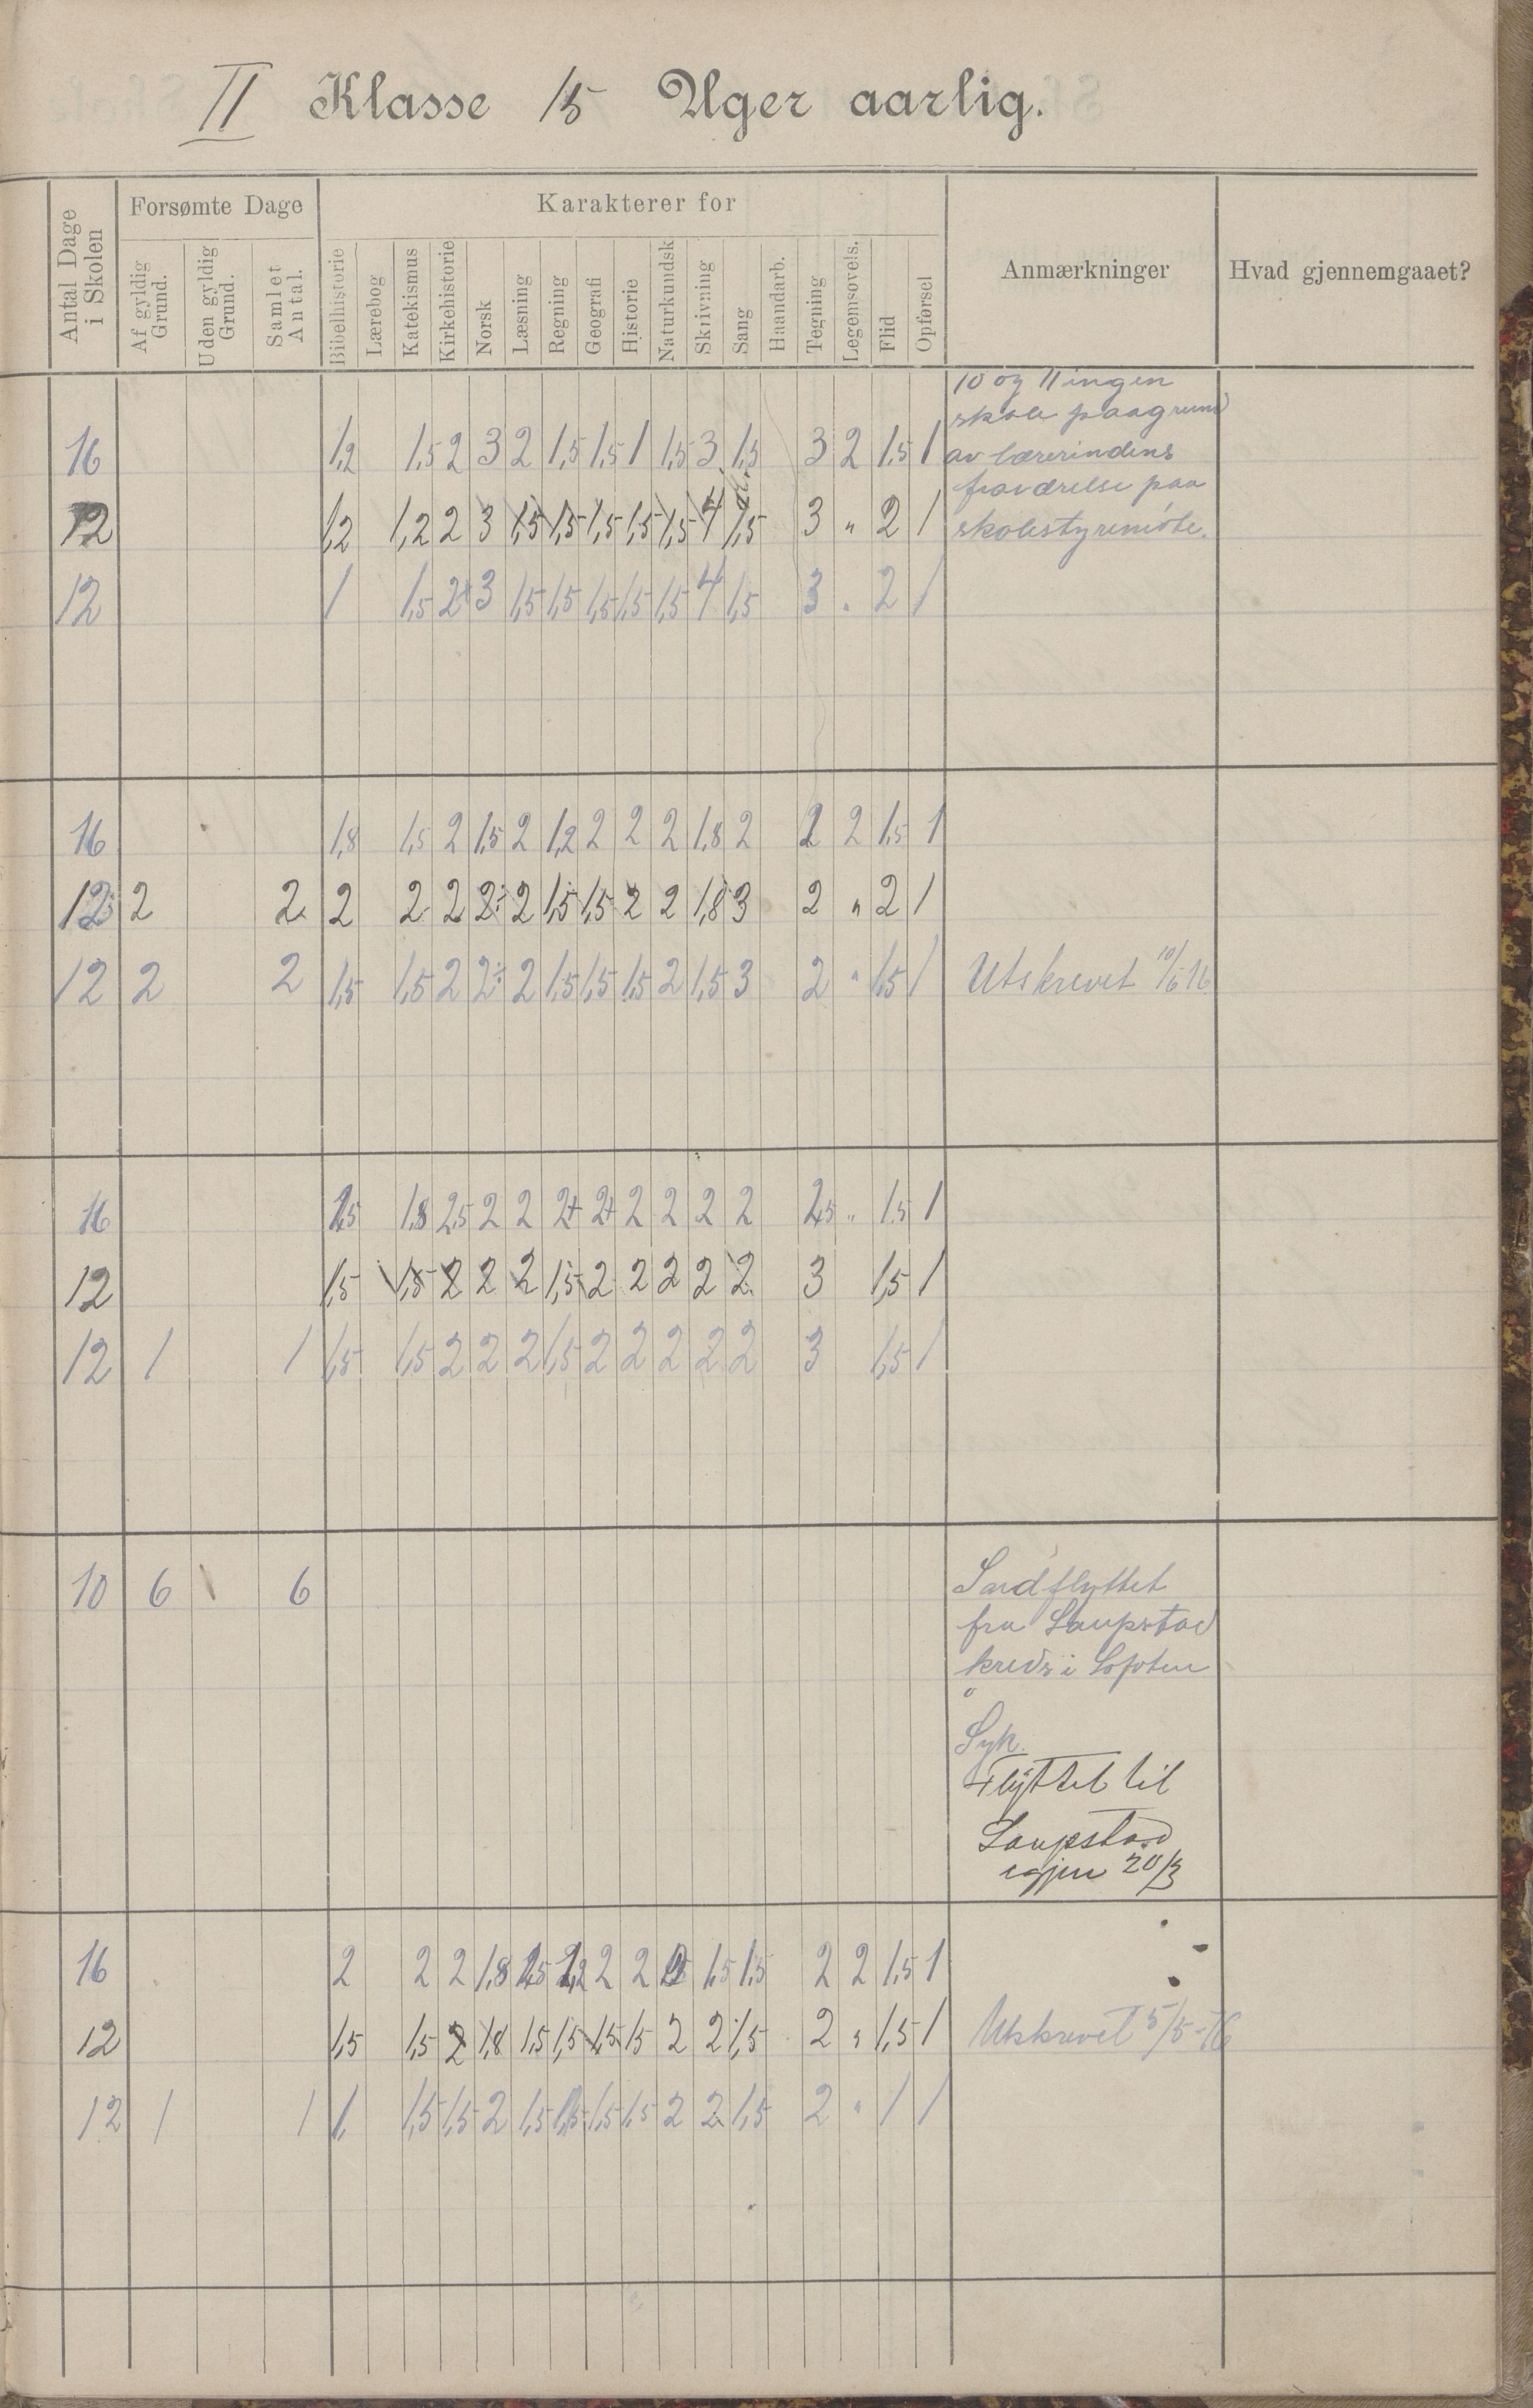 II Klasse 15 Uger aarlig.
Antal Dage i Skolen
Forsømte Dage
Karakterer for
Anmærkninger
Hvad gjennemgaaet?
Af gyldig Grund.
Uden gyldig Grund.
Samlet Antal.
Bibelhistorie
Lærebog
Katekismus
Kirkehistorie
Norsk
Læsning
Regning
Geografi
Historie
Naturkundsk
Skrivning
Sang
Haandarb.
Tegning
Legemsøvels.
Flid
Opførsel
10 og 11 ingen
skole paa grund
av lærerindens
fraværelse paa
skolestyremöte.
16 1,2 1,5 2 3 2 1,5 1,5 1 1,5 3 1,5 3 2 1,5 1
12 1,2 1,2 2 3 1,5 1,5 1,5 1,5 1,5 4 1,5 3 " 2 1
12 1 1,5 2 3 1,5 1,5 1,5 1,5 1,5 4 1,5 3 " 2 1
16 1,8 1,5 2 1,5 2 1,2 2 2 2 1,8 2 2 2 1,5 1
12 2 2 2 2 2 2 2 1,5 1,5 2 2 1,8 3 2 " 2 1
12 2 2 1,5 1,5 2 2 2 1,5 1,5 1,5 2 1,5 3 2 " 1,5 1 Utskrevet 10/6 16
16 1,8 2,5 2 2 2+ 2+ 2 2 2 2 2,5 " 1,5 1
12 1,5 1,5 2 2 2 1,5 2 2 2 2 2 3 1,5 1
12 1 1 1,5 1,5 2 2 2 1,5 2 2 2 2 2 3 1,5 1
10 6 6
Indflyttet
fra Laupstad
kreds i Lofoten
Syk.
Flyttet til
Laupstad
igjen 20/3
16 2 2 2 1,8 2 2 1,5 1,5 2 2 1,5 1
12 1,5 1,5 2 1,8 1,5 1,5 1,5 1,5 2 2 1,5 2 " 1,5 1 Utskrevet 5/5-16
12 1 1 1, 1,5 1,5 2 1,5 1,5 1,5 1,5 2 2 1,5 2 " 1 1